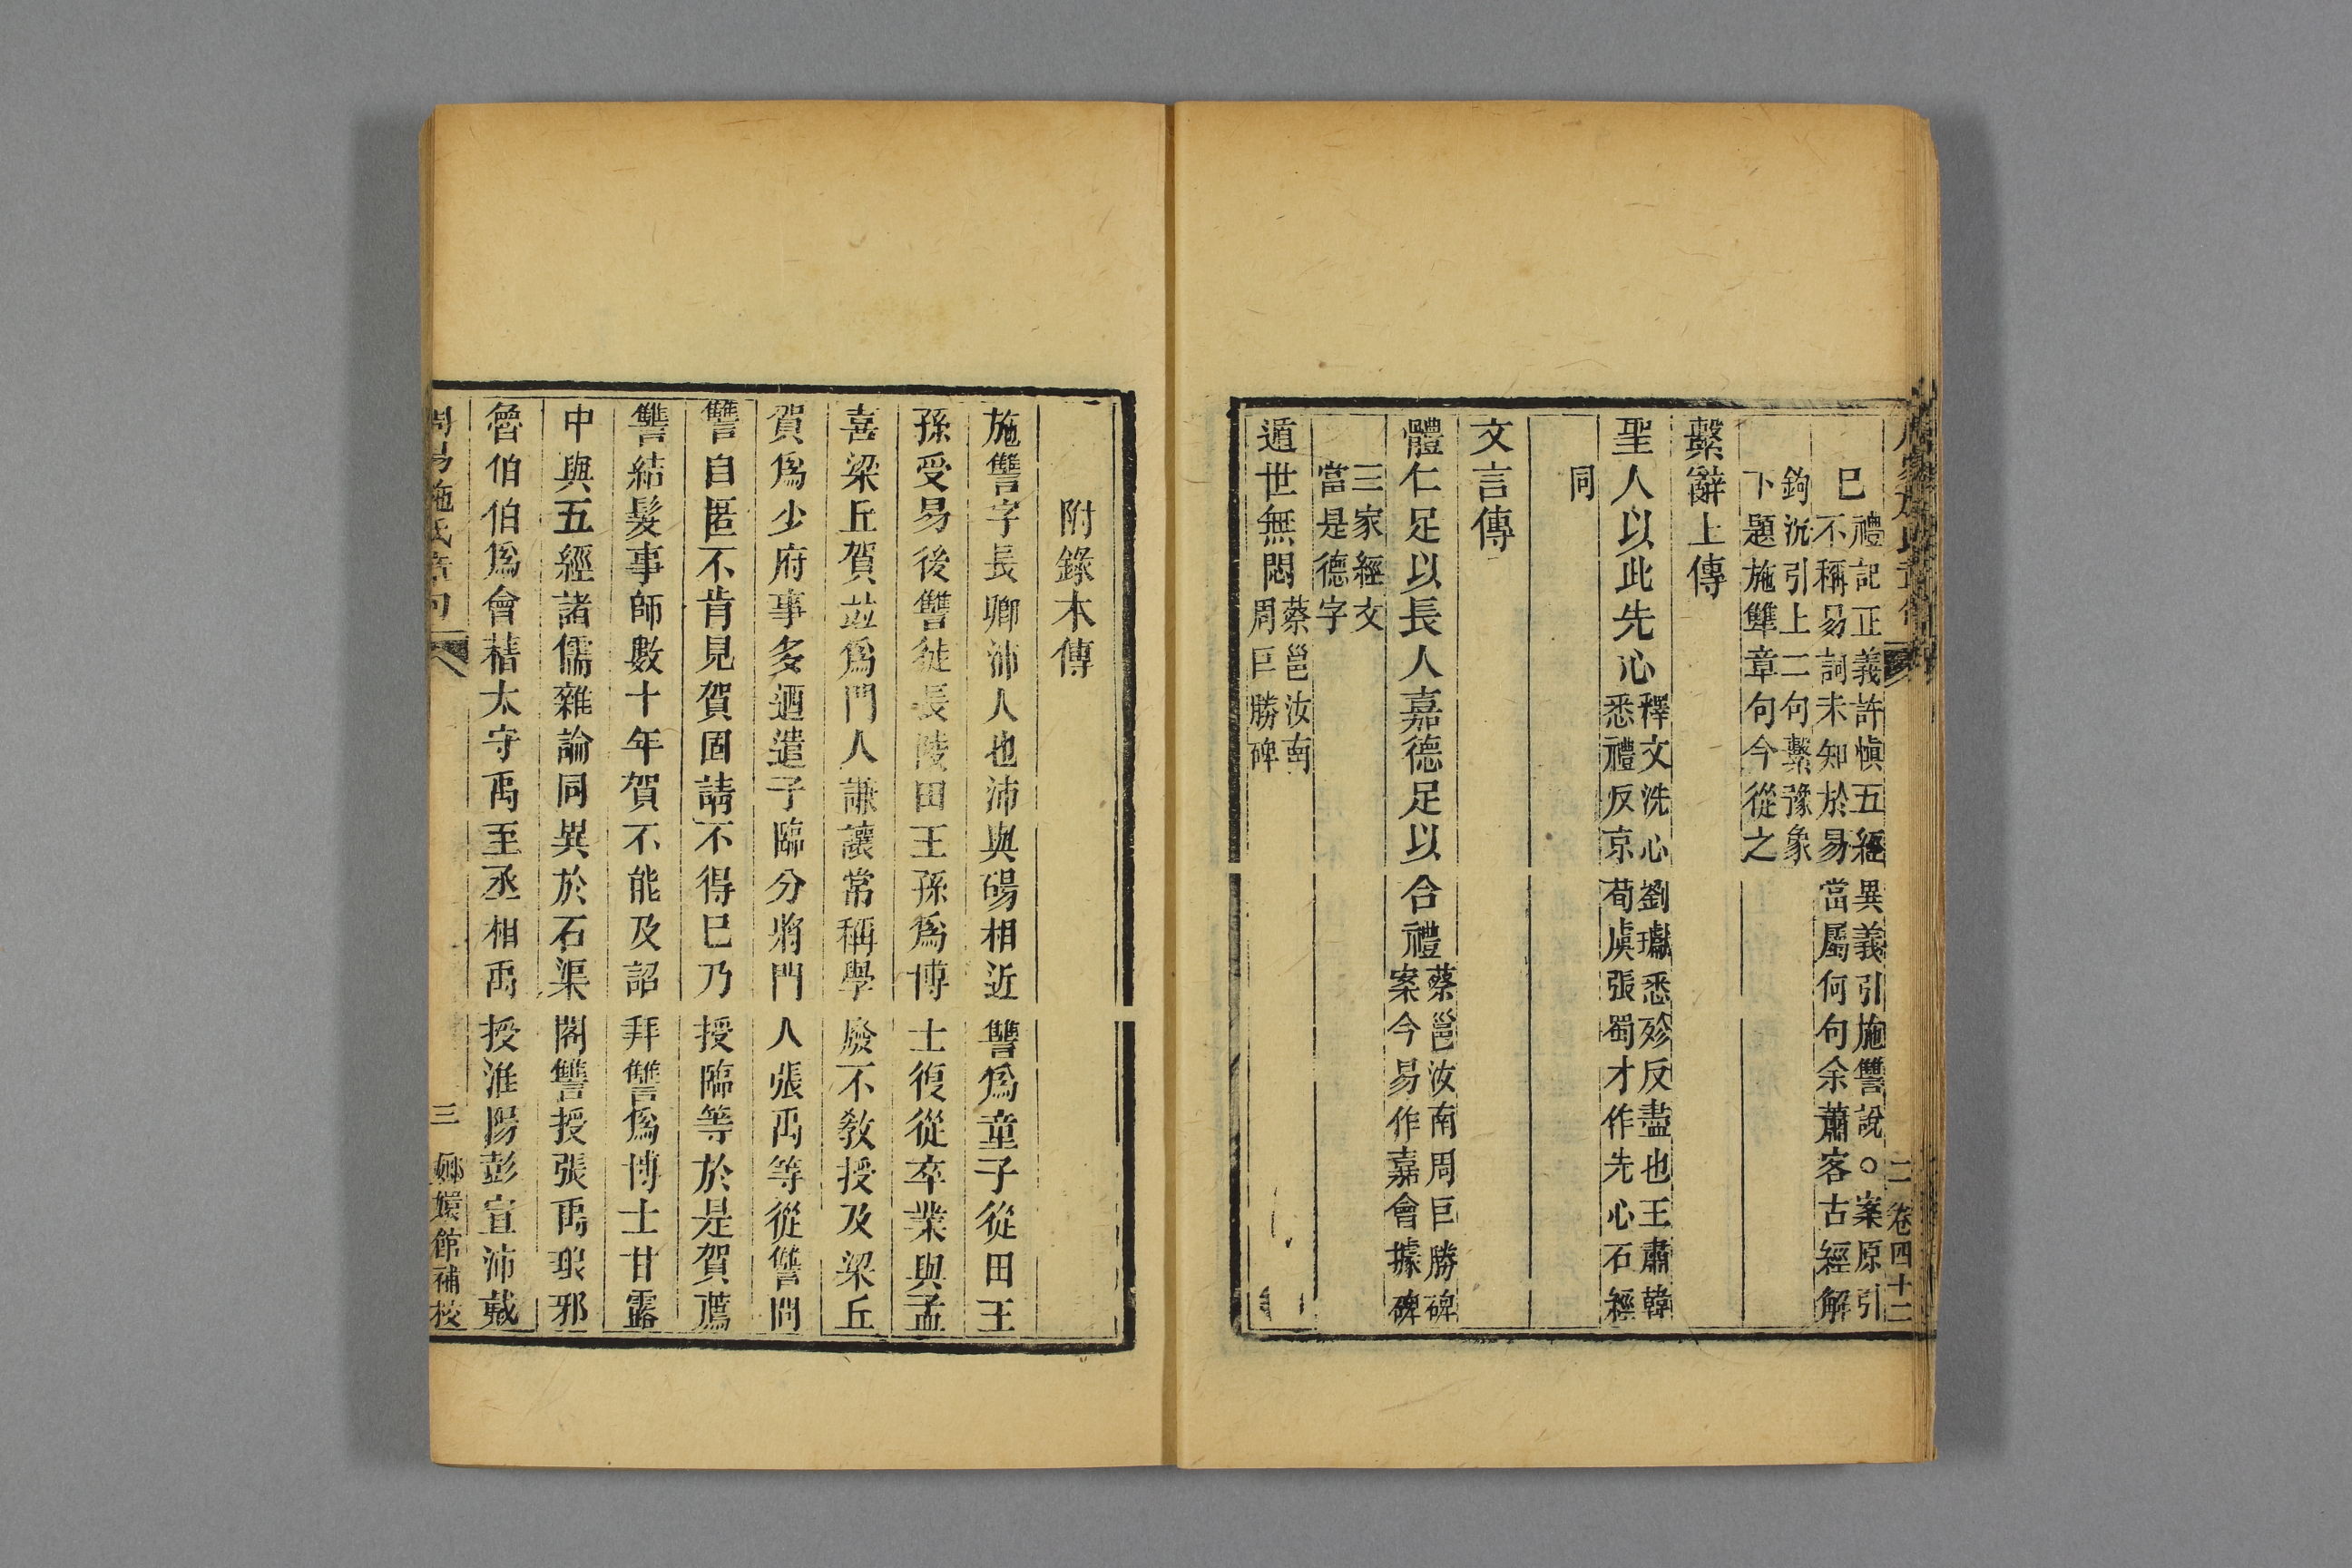 二 卷四十二
巳
禮記正義許愼五經異義引施讐說○案原引
不稱易詞未知於易當屬何句余蕭客古經解
鉤沉引上二句繫豫象
下題施讐章句今從之
繫辭上傳
聖人以此先心
釋文洗心劉瓛悉殄反盡也王肅韓
悉禮反京荀虞張蜀才作先心石經
同
文言傳
體仁足以長人嘉德足以合禮
蔡邕汝南周巨勝碑
案今易作嘉會據碑
三家經文
當是德字
遁世無悶
蔡邕汝南
周巨勝碑
附錄本傳
施讐字長卿沛人也沛與碭相近讐爲童子從田王
孫受易後讐徙長陵田王孫爲博士復從卒業與孟
喜梁丘賀竝爲門人謙讓常稱學廢不敎授及梁丘
賀爲少府事多迺遣子臨分將門人張禹等從讐問
讐自匿不肯見賀固請不得巳乃授臨等於是賀薦
讐結髮事師數十年賀不能及詔拜讐爲博士甘露
中與五經諸儒雜論同異於石渠閣讐授張禹琅邪
魯伯伯爲會稽太守禹至丞相禹授淮陽彭宣沛戴
周易施氏章句 三 嫏嬛館補校